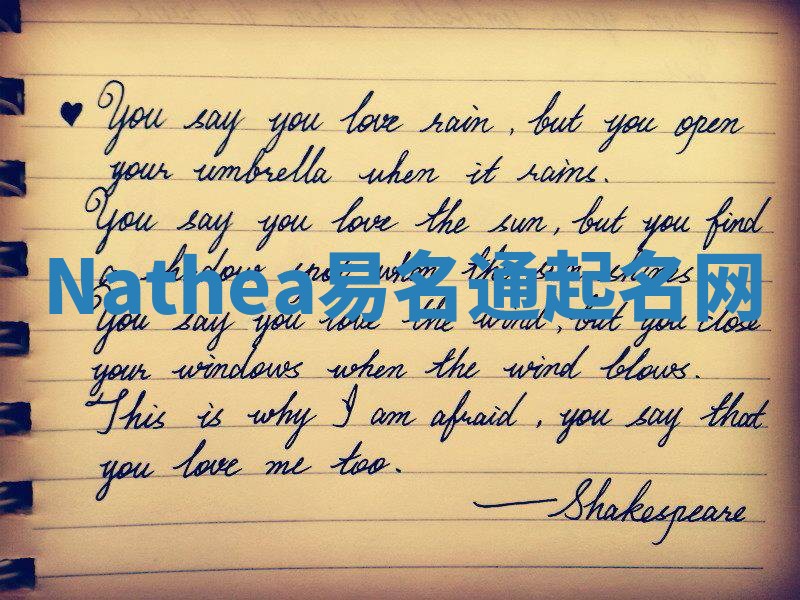 ♥ You say you love rain, but you open
your umbrella when it rains.
You say you love the sun, but you find
a shadow spot when the sun shines
Nathea易名通起名网
You say you love the wind, but you close
your windows when the wind blows.
This is why I am afraid, you say that
you love me too.
— Shakespeare